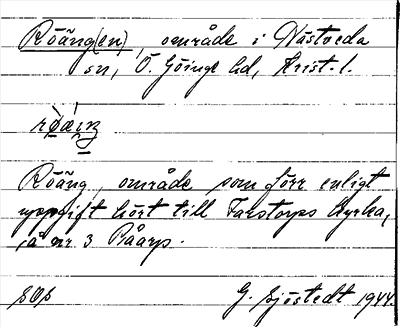 Röäng(en), område i Nästveda
sn, Ö. Göinge hd, Krist. l.
Röäng, område som förr enligt
uppgift hört till Farstorps kyrka,
å nr 3 Råarp.
SOS G. Sjöstedt 1944.